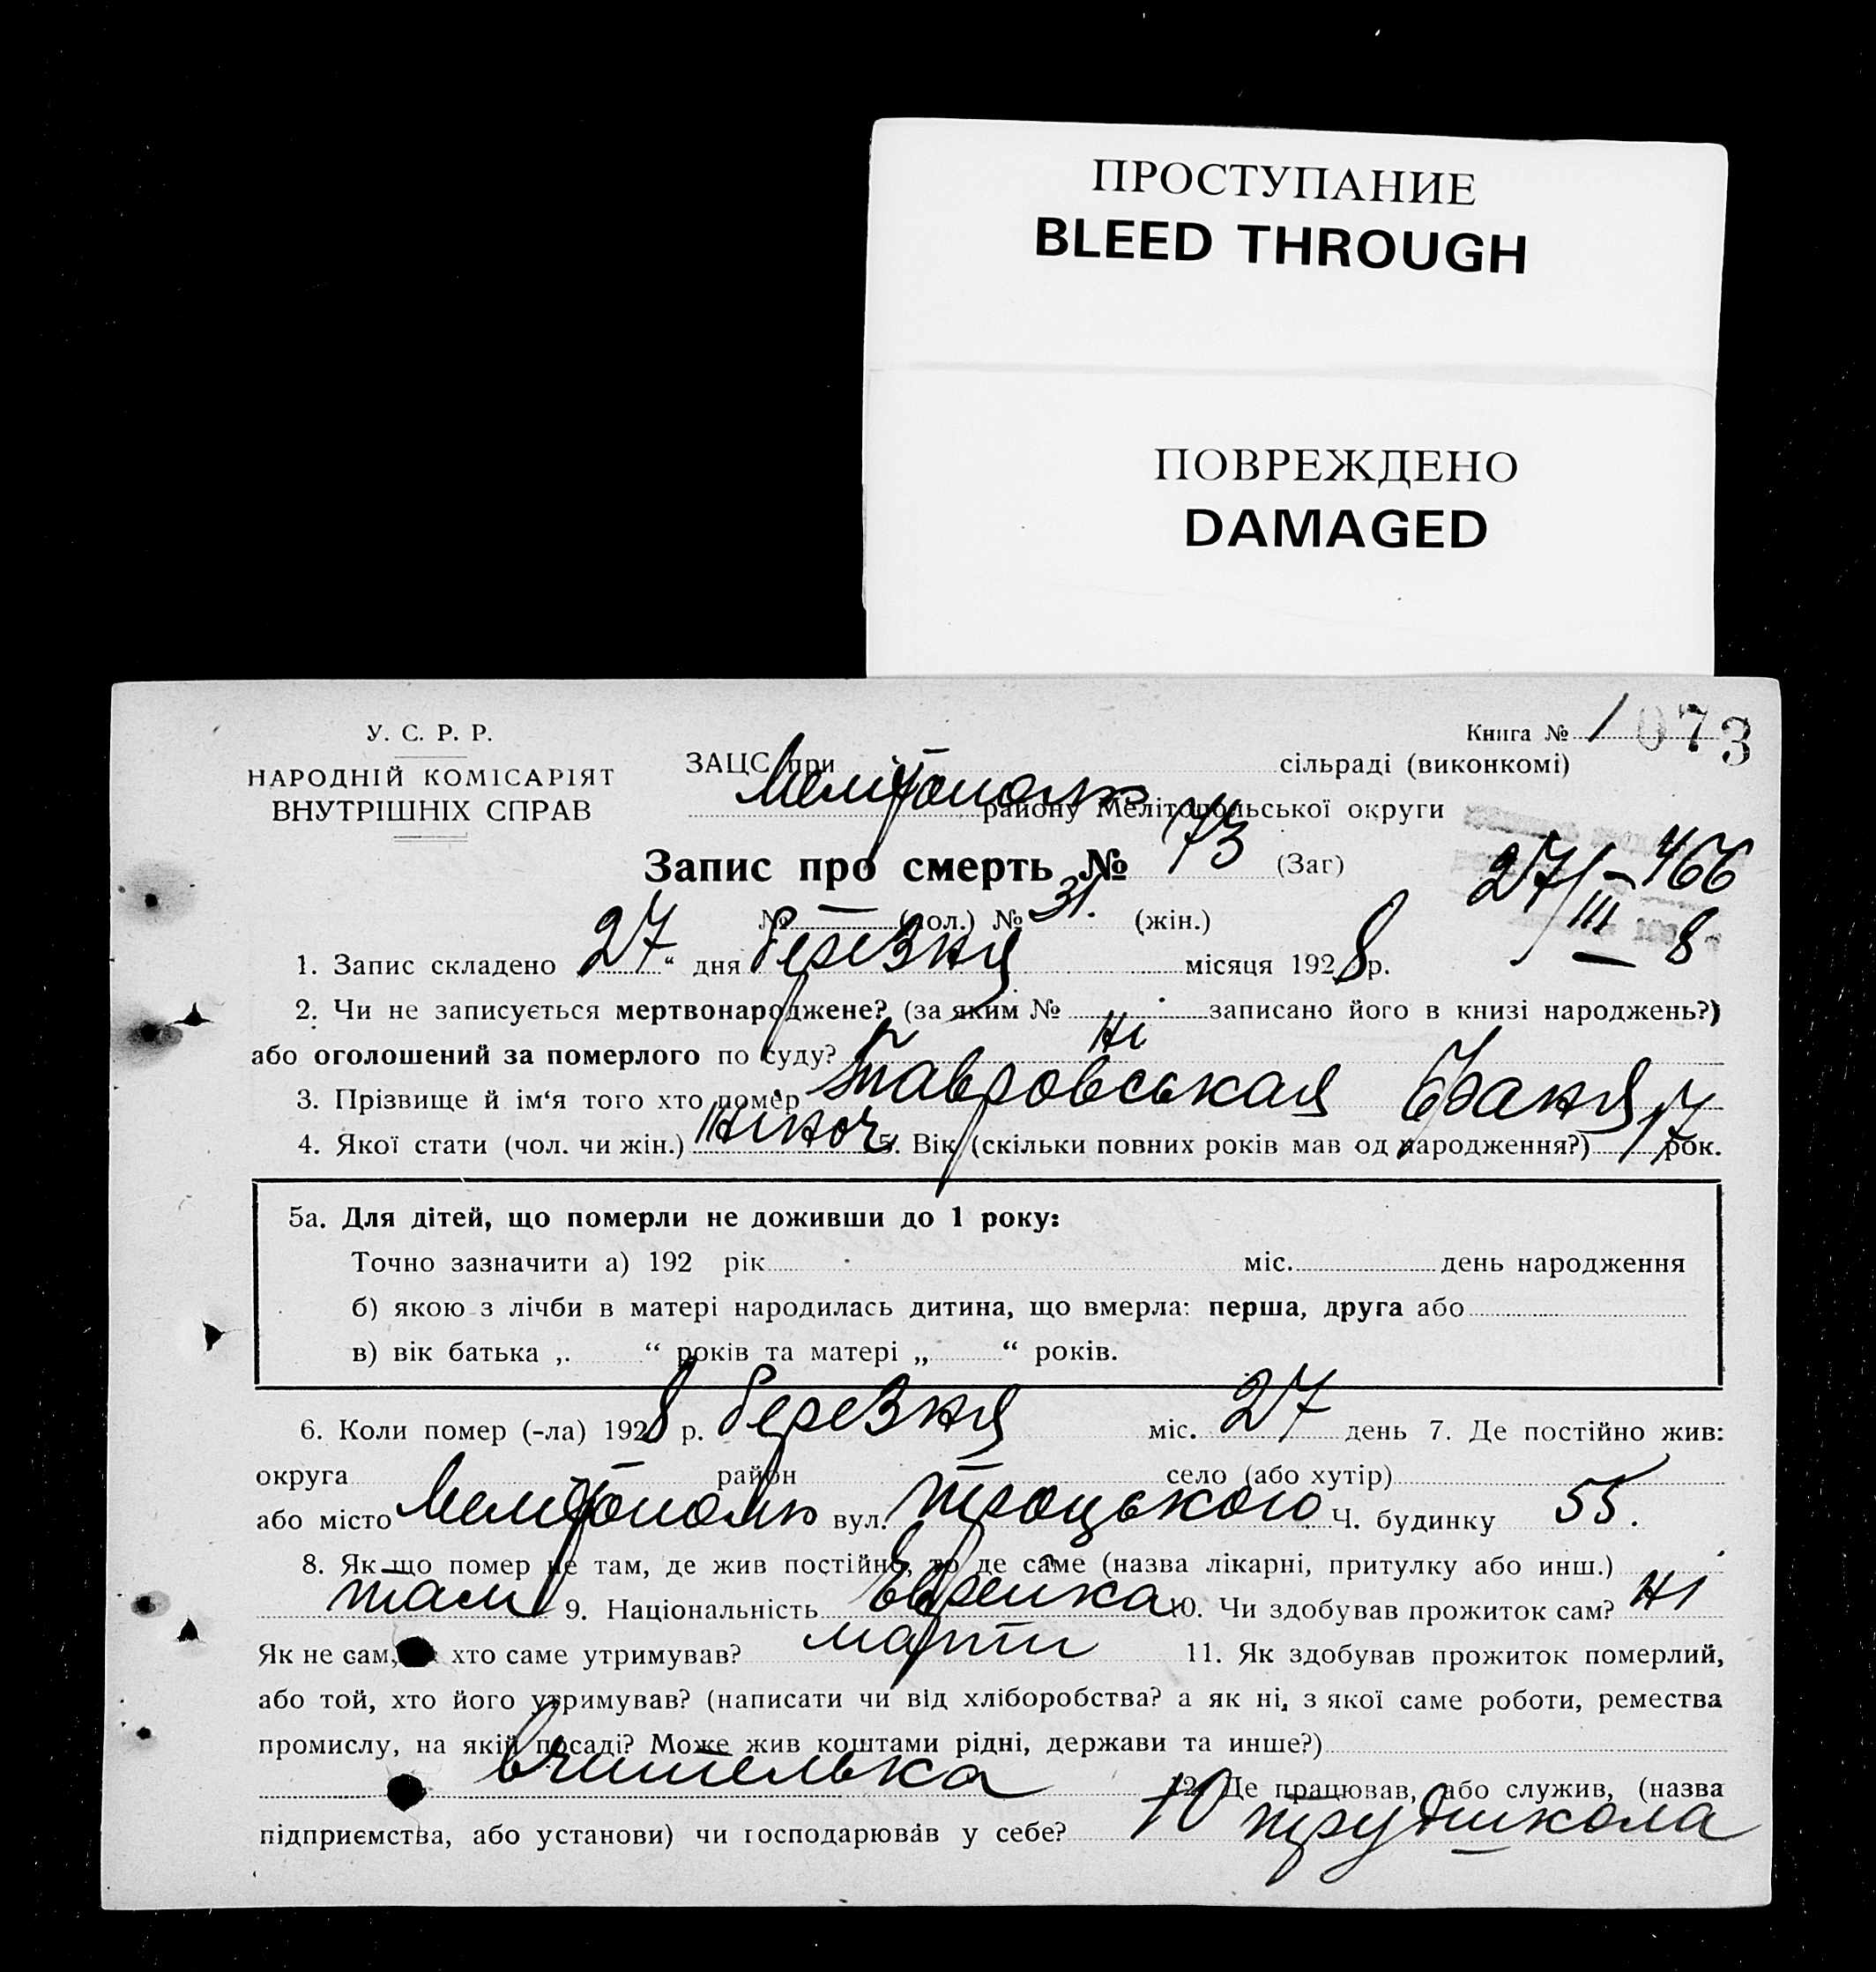 ПРОСТУПАНИЕ
BLEED THROUGH
ПОВРЕЖДЕНО
DAMAGED
У. С. Р. Р.
НАРОДНІЙ КОМІСАРІЯТ
ВНУТРІШНІХ СПРАВ
Книга № 1 073
ЗАЦС при сільраді (виконкомі)
Мелітополь району Мелітопольської округи
Запис про смерть № 73 (Заг)
27/III – 466
8
№ — (чол.) № 31. (жін.)
1. Запис складено 27 “ дня березня місяця 1928 р.
2. Чи не записується мертвонароджене? (за яким № записано його в книзі народжень?)
або оголошений за померлого по суду? Ні
3. Прізвище й ім‘я того хто помер Тавровськая
4. Якої стати (чол. чи жін.) жіноч. 5. Вік (скільки повних років мав од народження?) 17 рок.
5а. Для дітей, що померли не доживши до 1 року:
Точно зазначити а) 192 рік міс. день народження
б) якою з лічби в матері народилась дитина, що вмерла: перша, друга або
в) вік батька „ “ років та матері „ “ років.
6. Коли помер (-ла) 1928 р. березня міс. 27 день 7. Де постійно жив:
округа район село (або хутір)
або місто Мелітополь вул. Троцького Ч. будинку 55.
8. Як що помер не там, де жив постійно, то де саме (назва лікарні, притулку або инш.)
там 9. Національність Еврейка 10. Чи здобував прожиток сам? Ні
Як не сам, хто саме утримував? мати 11. Як здобував прожиток померлий,
або той, хто його утримував? (написати чи від хліборобства? а як ні, з якої саме роботи, ремества
промислу, на якій посаді? Може жив коштами рідні, держави та инше?)
вчителька 12. Де працював, або служив, (назва
підприємства, або установи) чи господарював у себе? 10 трудшкола